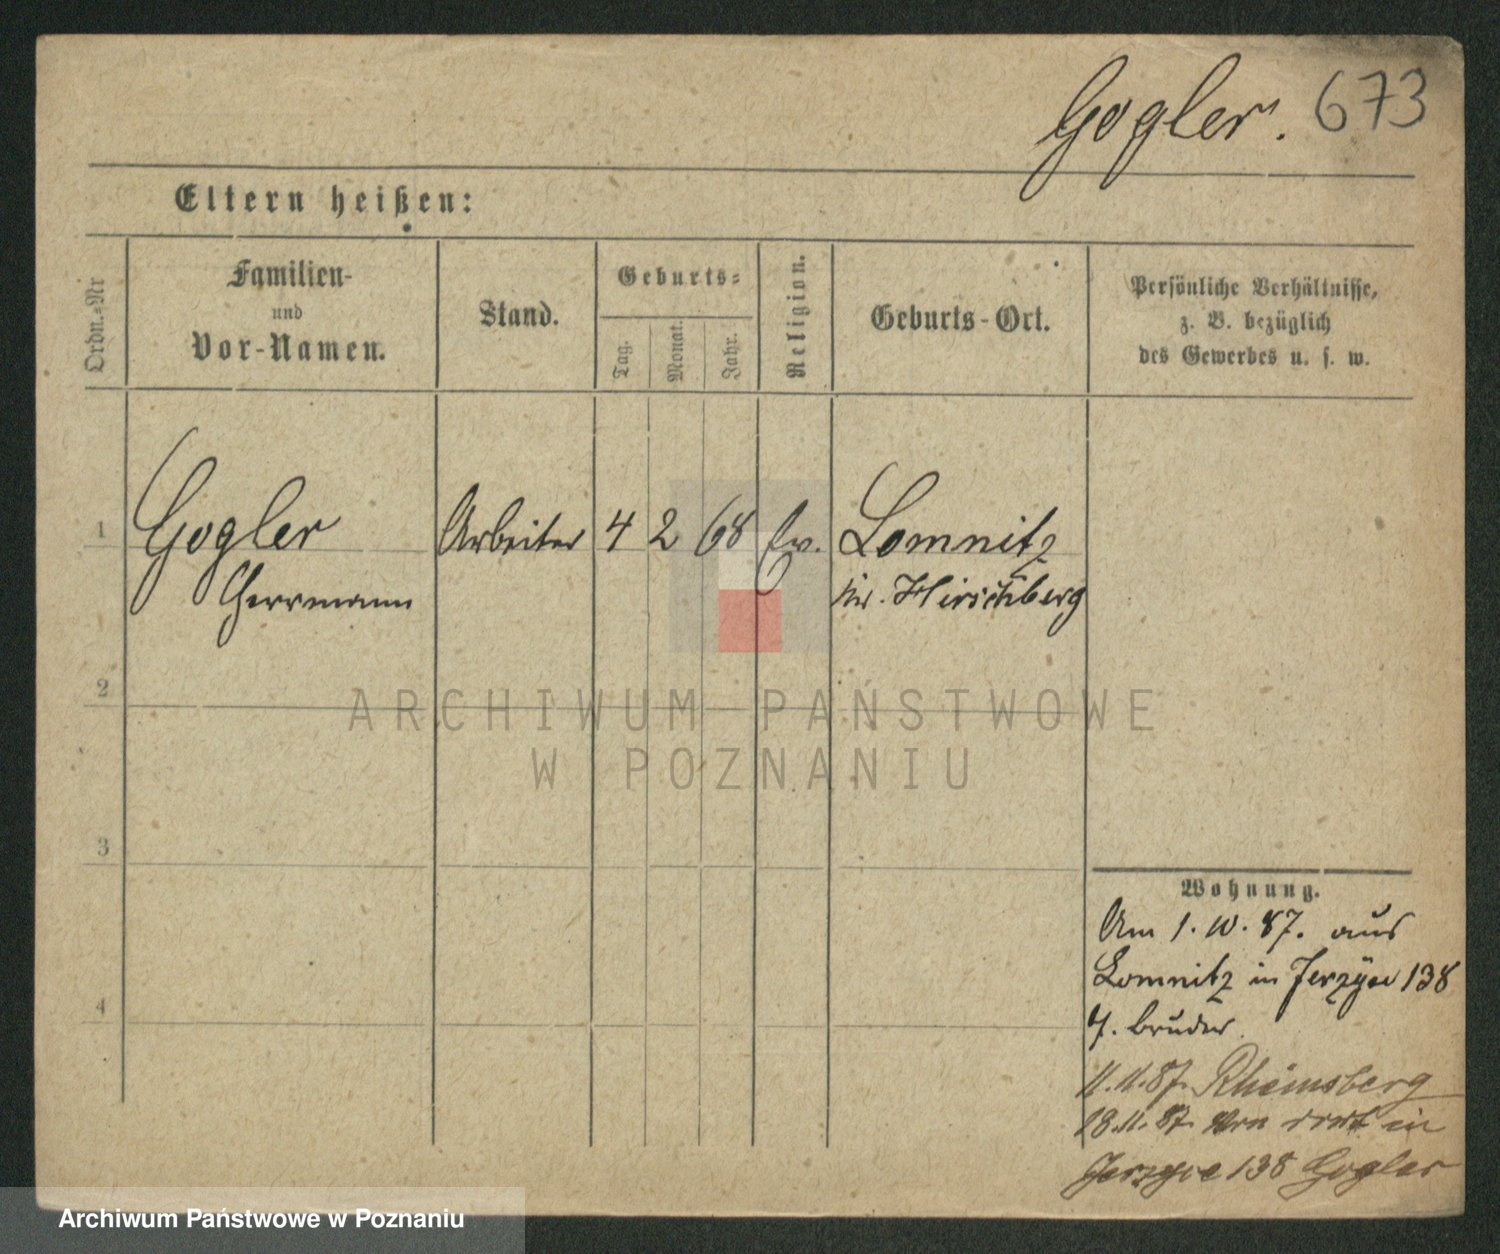 Gogler. 673
Eltern heißen:
Ordn.-Nr
Familien-
und
Vor-Namen.
Stand.
Geburts-
Tag.
Monat.
Jahr.
Religion.
Geburts-Ort.
Persönliche Verhältnisse,
z. B. bezüglich
des Gewerbes u. s. w.
1 Gogler Arbeiter 4 2 68 Ev. Lomnitz
Herrmann Kr. Hirschberg
2
3
4
Wohnung.
Am 1. 10. 87. aus
Lomnitz in Jerzyce 138
b. Bruder.
11.11.87. Rheinsberg
28.11.87. von dort in
Jerzyce 138 Gogler
ARCHIWUM PAŃSTWOWE
W POZNANIU
Archiwum Państwowe w Poznaniu